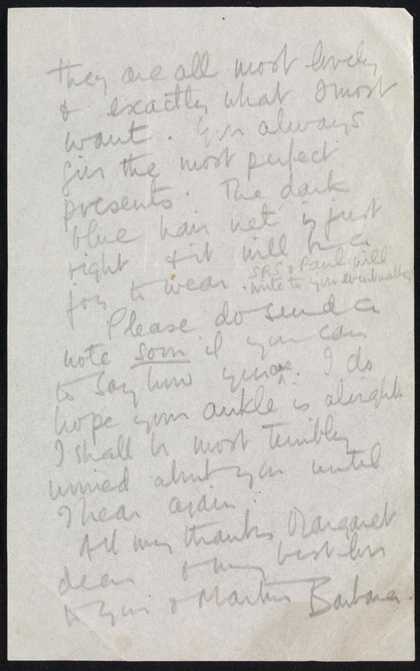 They are all most lovely
& exactly what I most
want. You always
give the most perfect
presents. The dark
blue hair net is just
right & it will be a
joy to wear. SRS & Paul will
write to you eventually
Please do send a
note soon if you can
to say how you are. I do
hope your ankle is alright
I shall be most terribly
worried about you until
I hear again.
All my thanks Margaret
dear & my best love
to you & Martin Barbara.